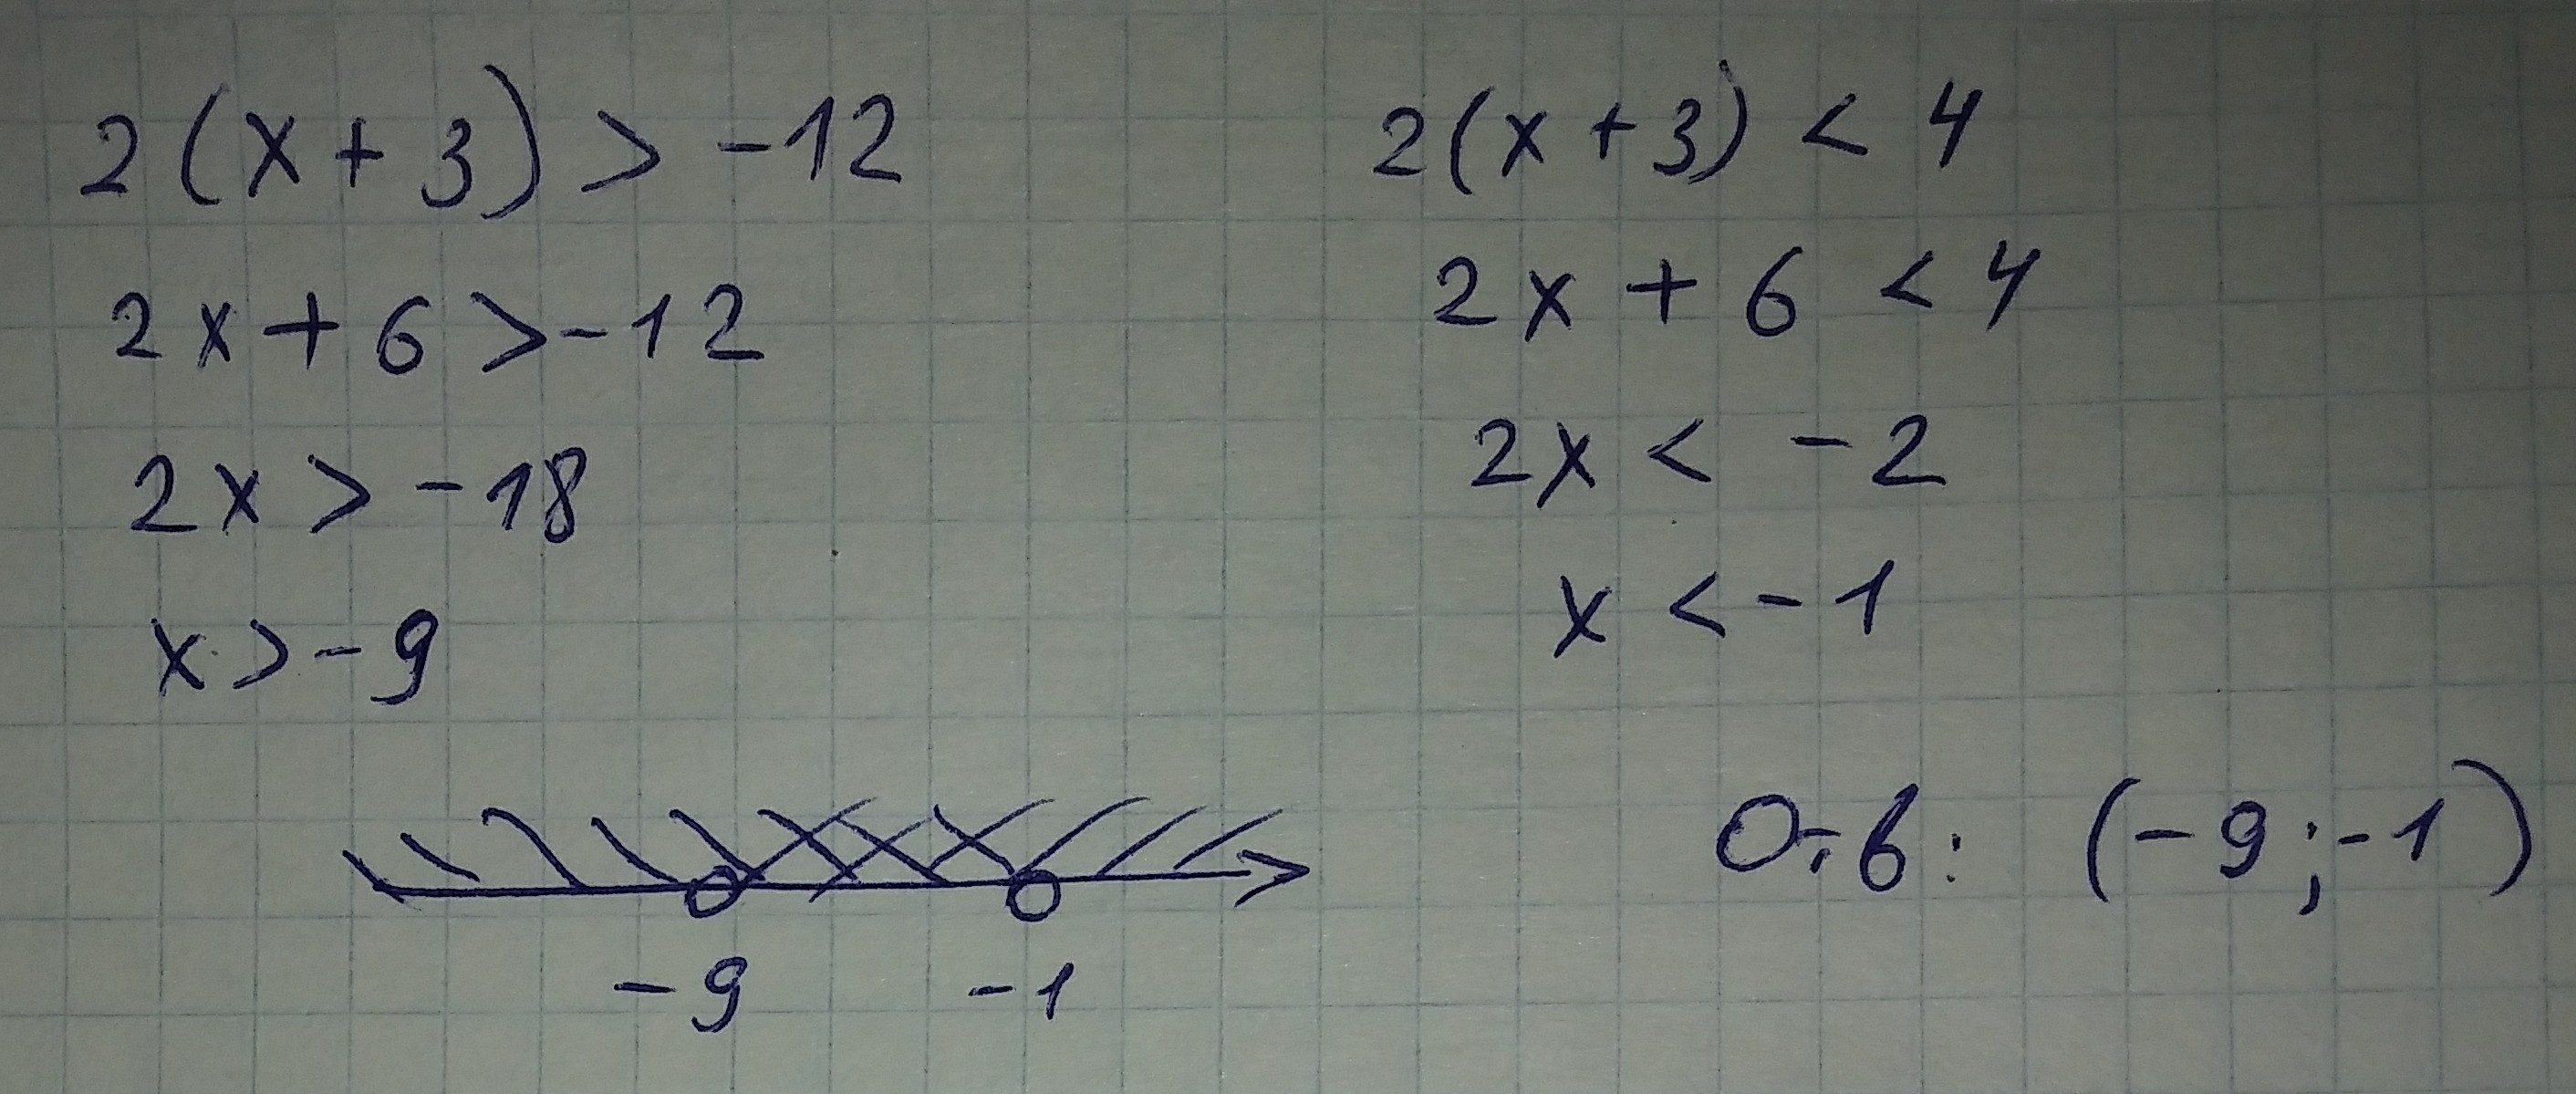 2(x+3)>-12
2x+6>-12
2x>-18
x>-9
2(x+3)<4
2x+6<4
2x<-2
x<-1
-9 -1
Отв: (-9;-1)